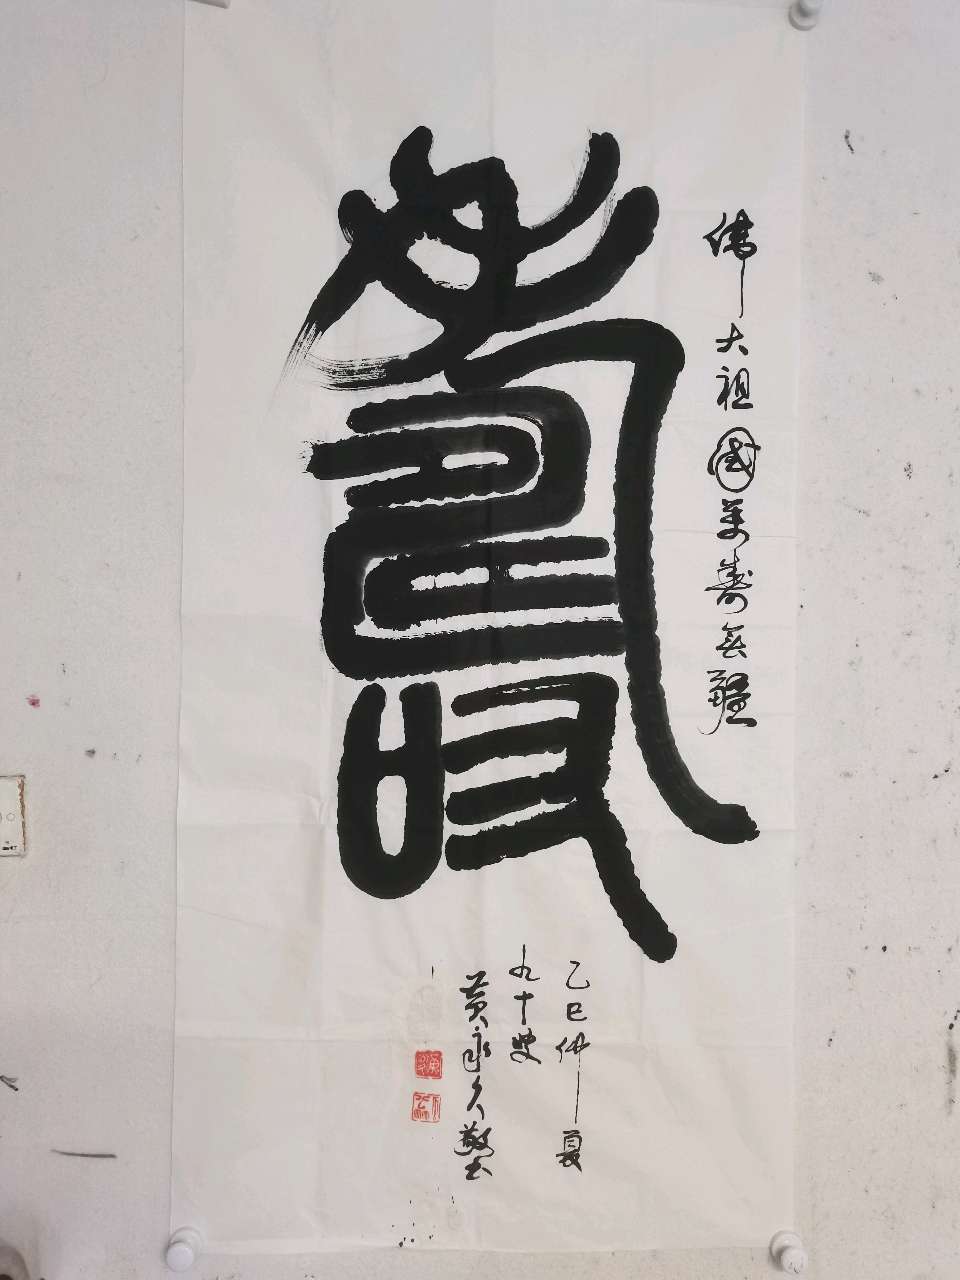 伟大祖國萬壽无疆
壽
乙巳仲夏
九十叟
黄永久敬书